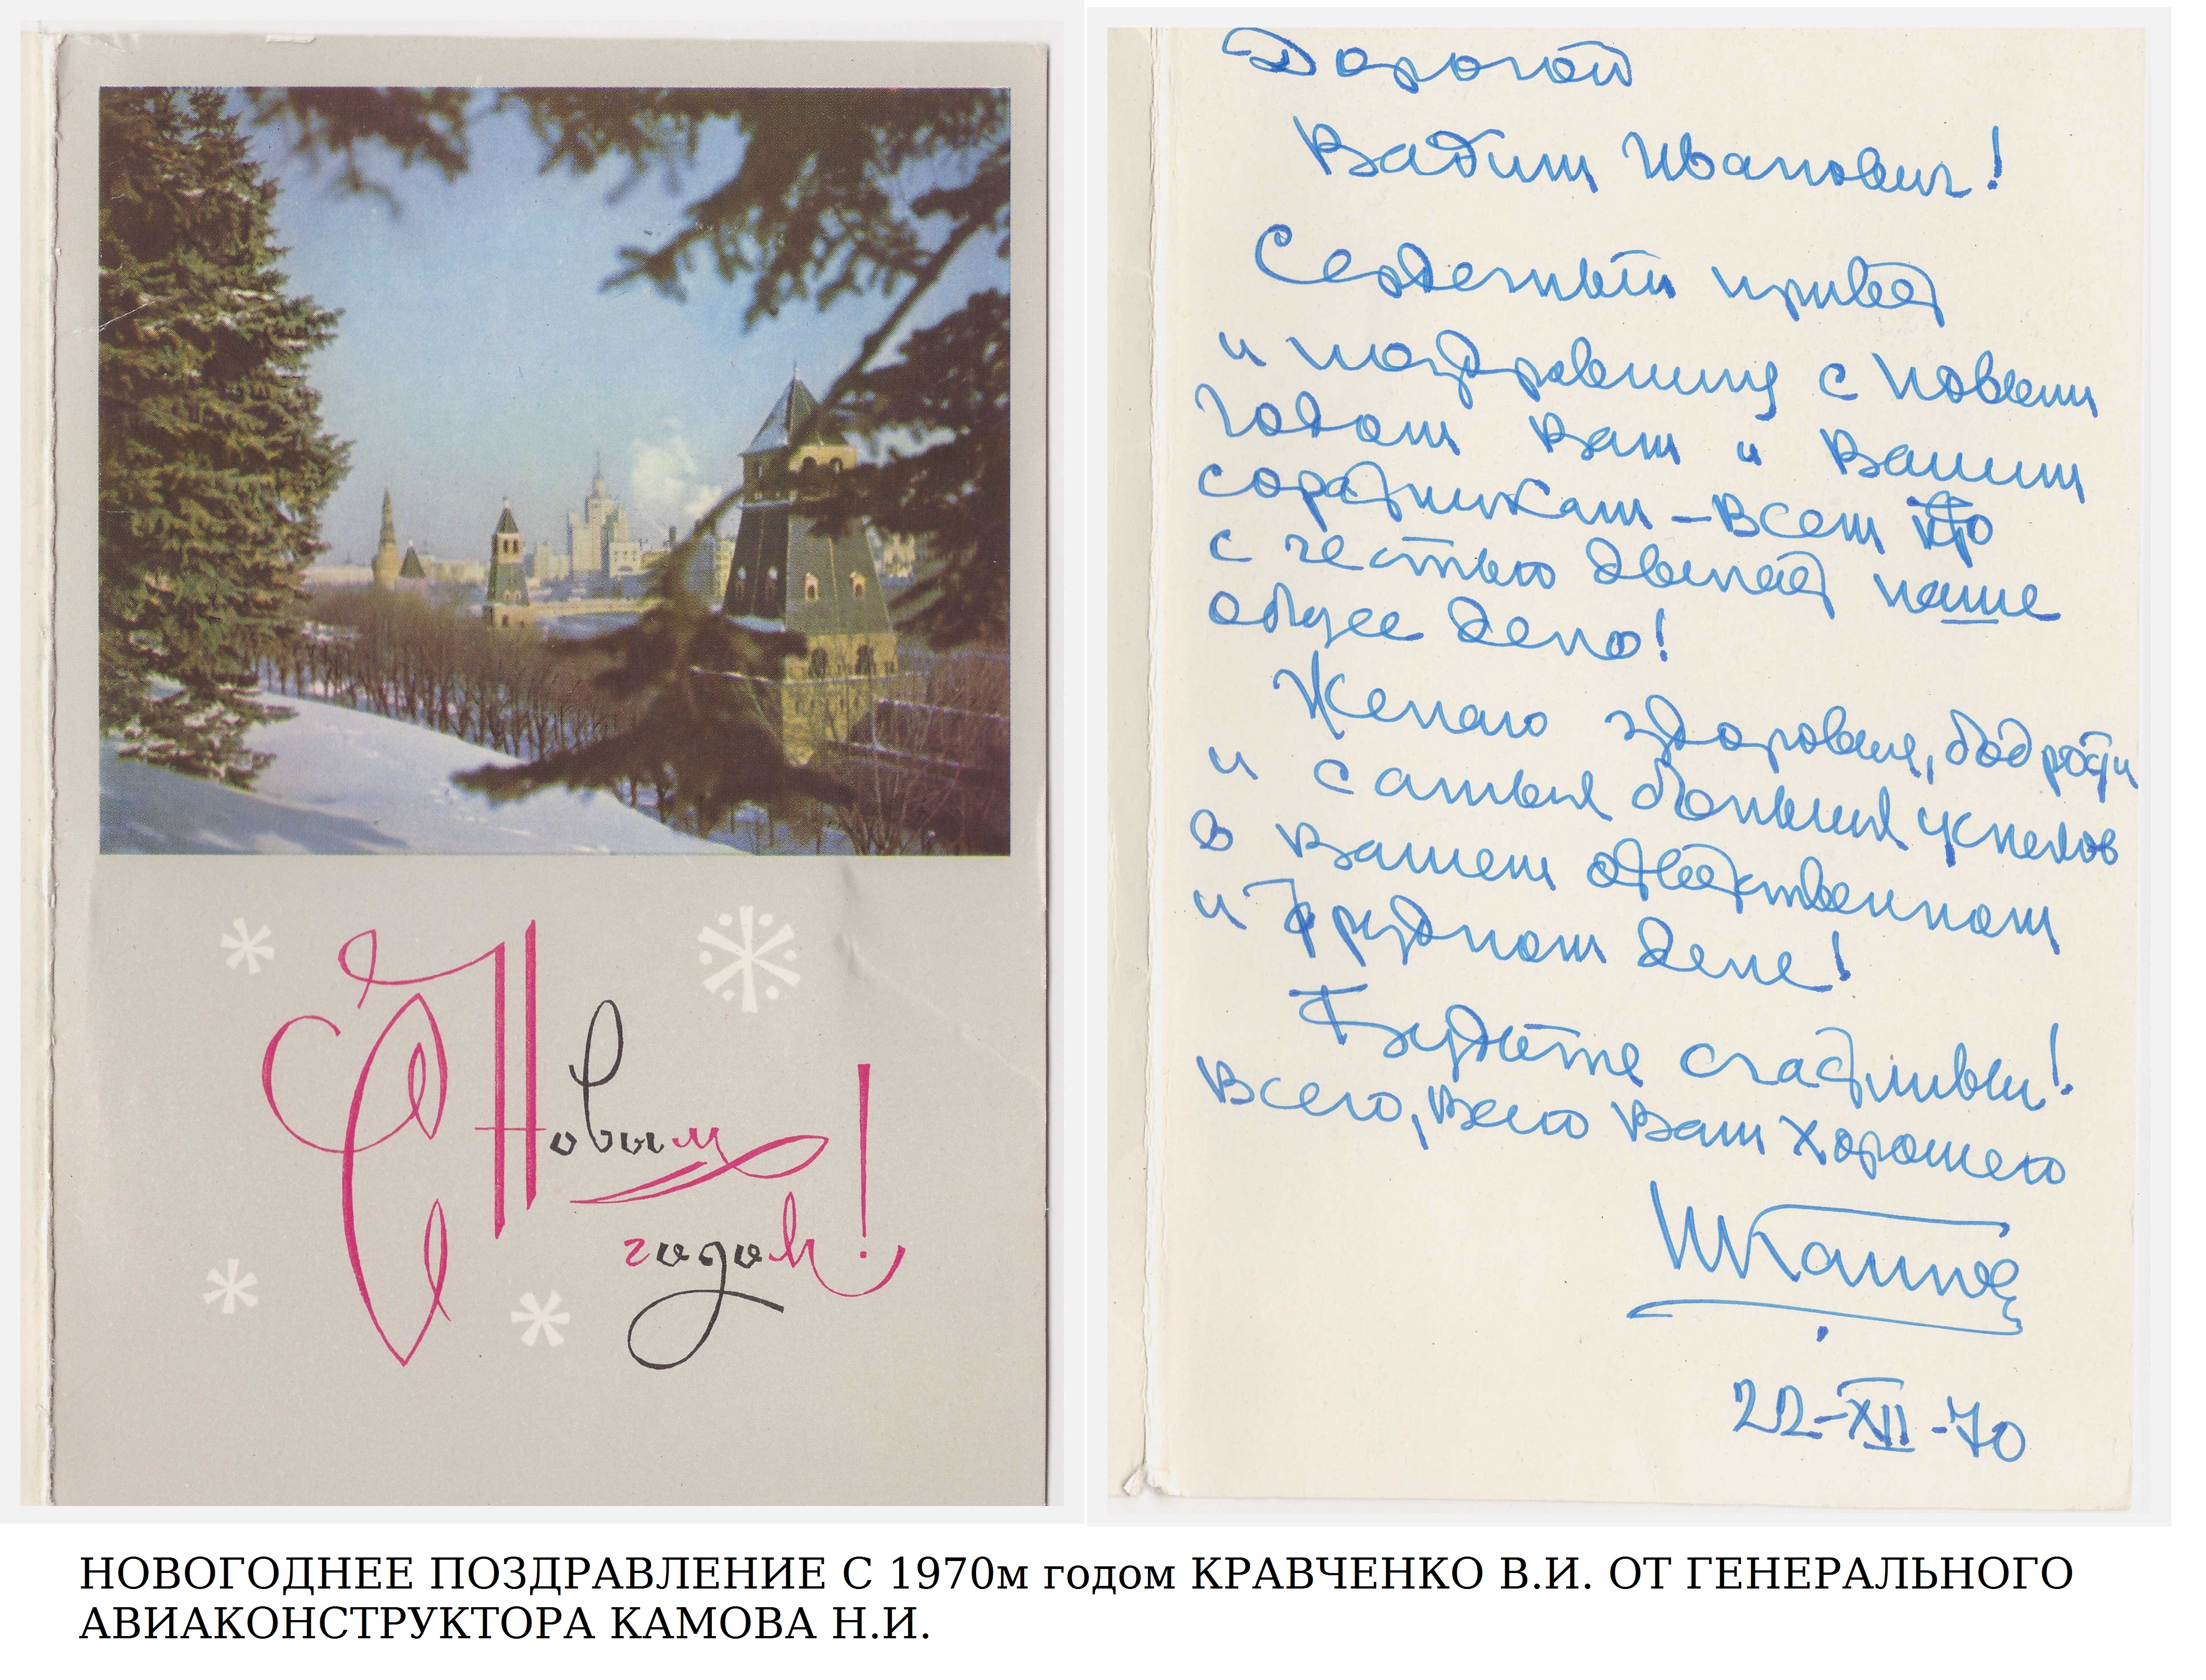 С Новым
годом!
Дорогой
Вадим Иванович!
Сердечный привет
и поздравляю с Новым
Годом Вам и Вашим
соратникам – всем кто
с честью двигает наше
общее дело!
Желаю здоровья, бодрости
и самых больших успехов
в Вашем ответственном
и трудном деле!
Будьте счастливы!
Всего, всего Вам хорошего
НКамов
22-XII-70
НОВОГОДНЕЕ ПОЗДРАВЛЕНИЕ С 1970м годом КРАВЧЕНКО В.И. ОТ ГЕНЕРАЛЬНОГО
АВИАКОНСТРУКТОРА КАМОВА Н.И.